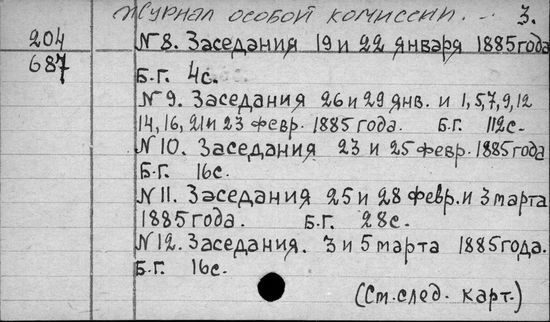 Журнал особой комиссии... 3.
204 N 8. Заседания 19 и 22 января 1885 года
687
Б.Г. 4с.
N 9. Заседания 26 и 29 янв. и 1,5,7,9,12
14,16,21 и 23 февр. 1885 года. Б.Г. 112с.
N 10. Заседания 23 и 25 февр. 1885 года
Б.Г. 16с.
N 11. Заседания 25 и 28 февр. и 3 марта
1885 года. Б.Г. 28с.
N 12. Заседания. 3 и 5 марта 1885 года.
Б.Г. 16с.
(См. след. карт.)